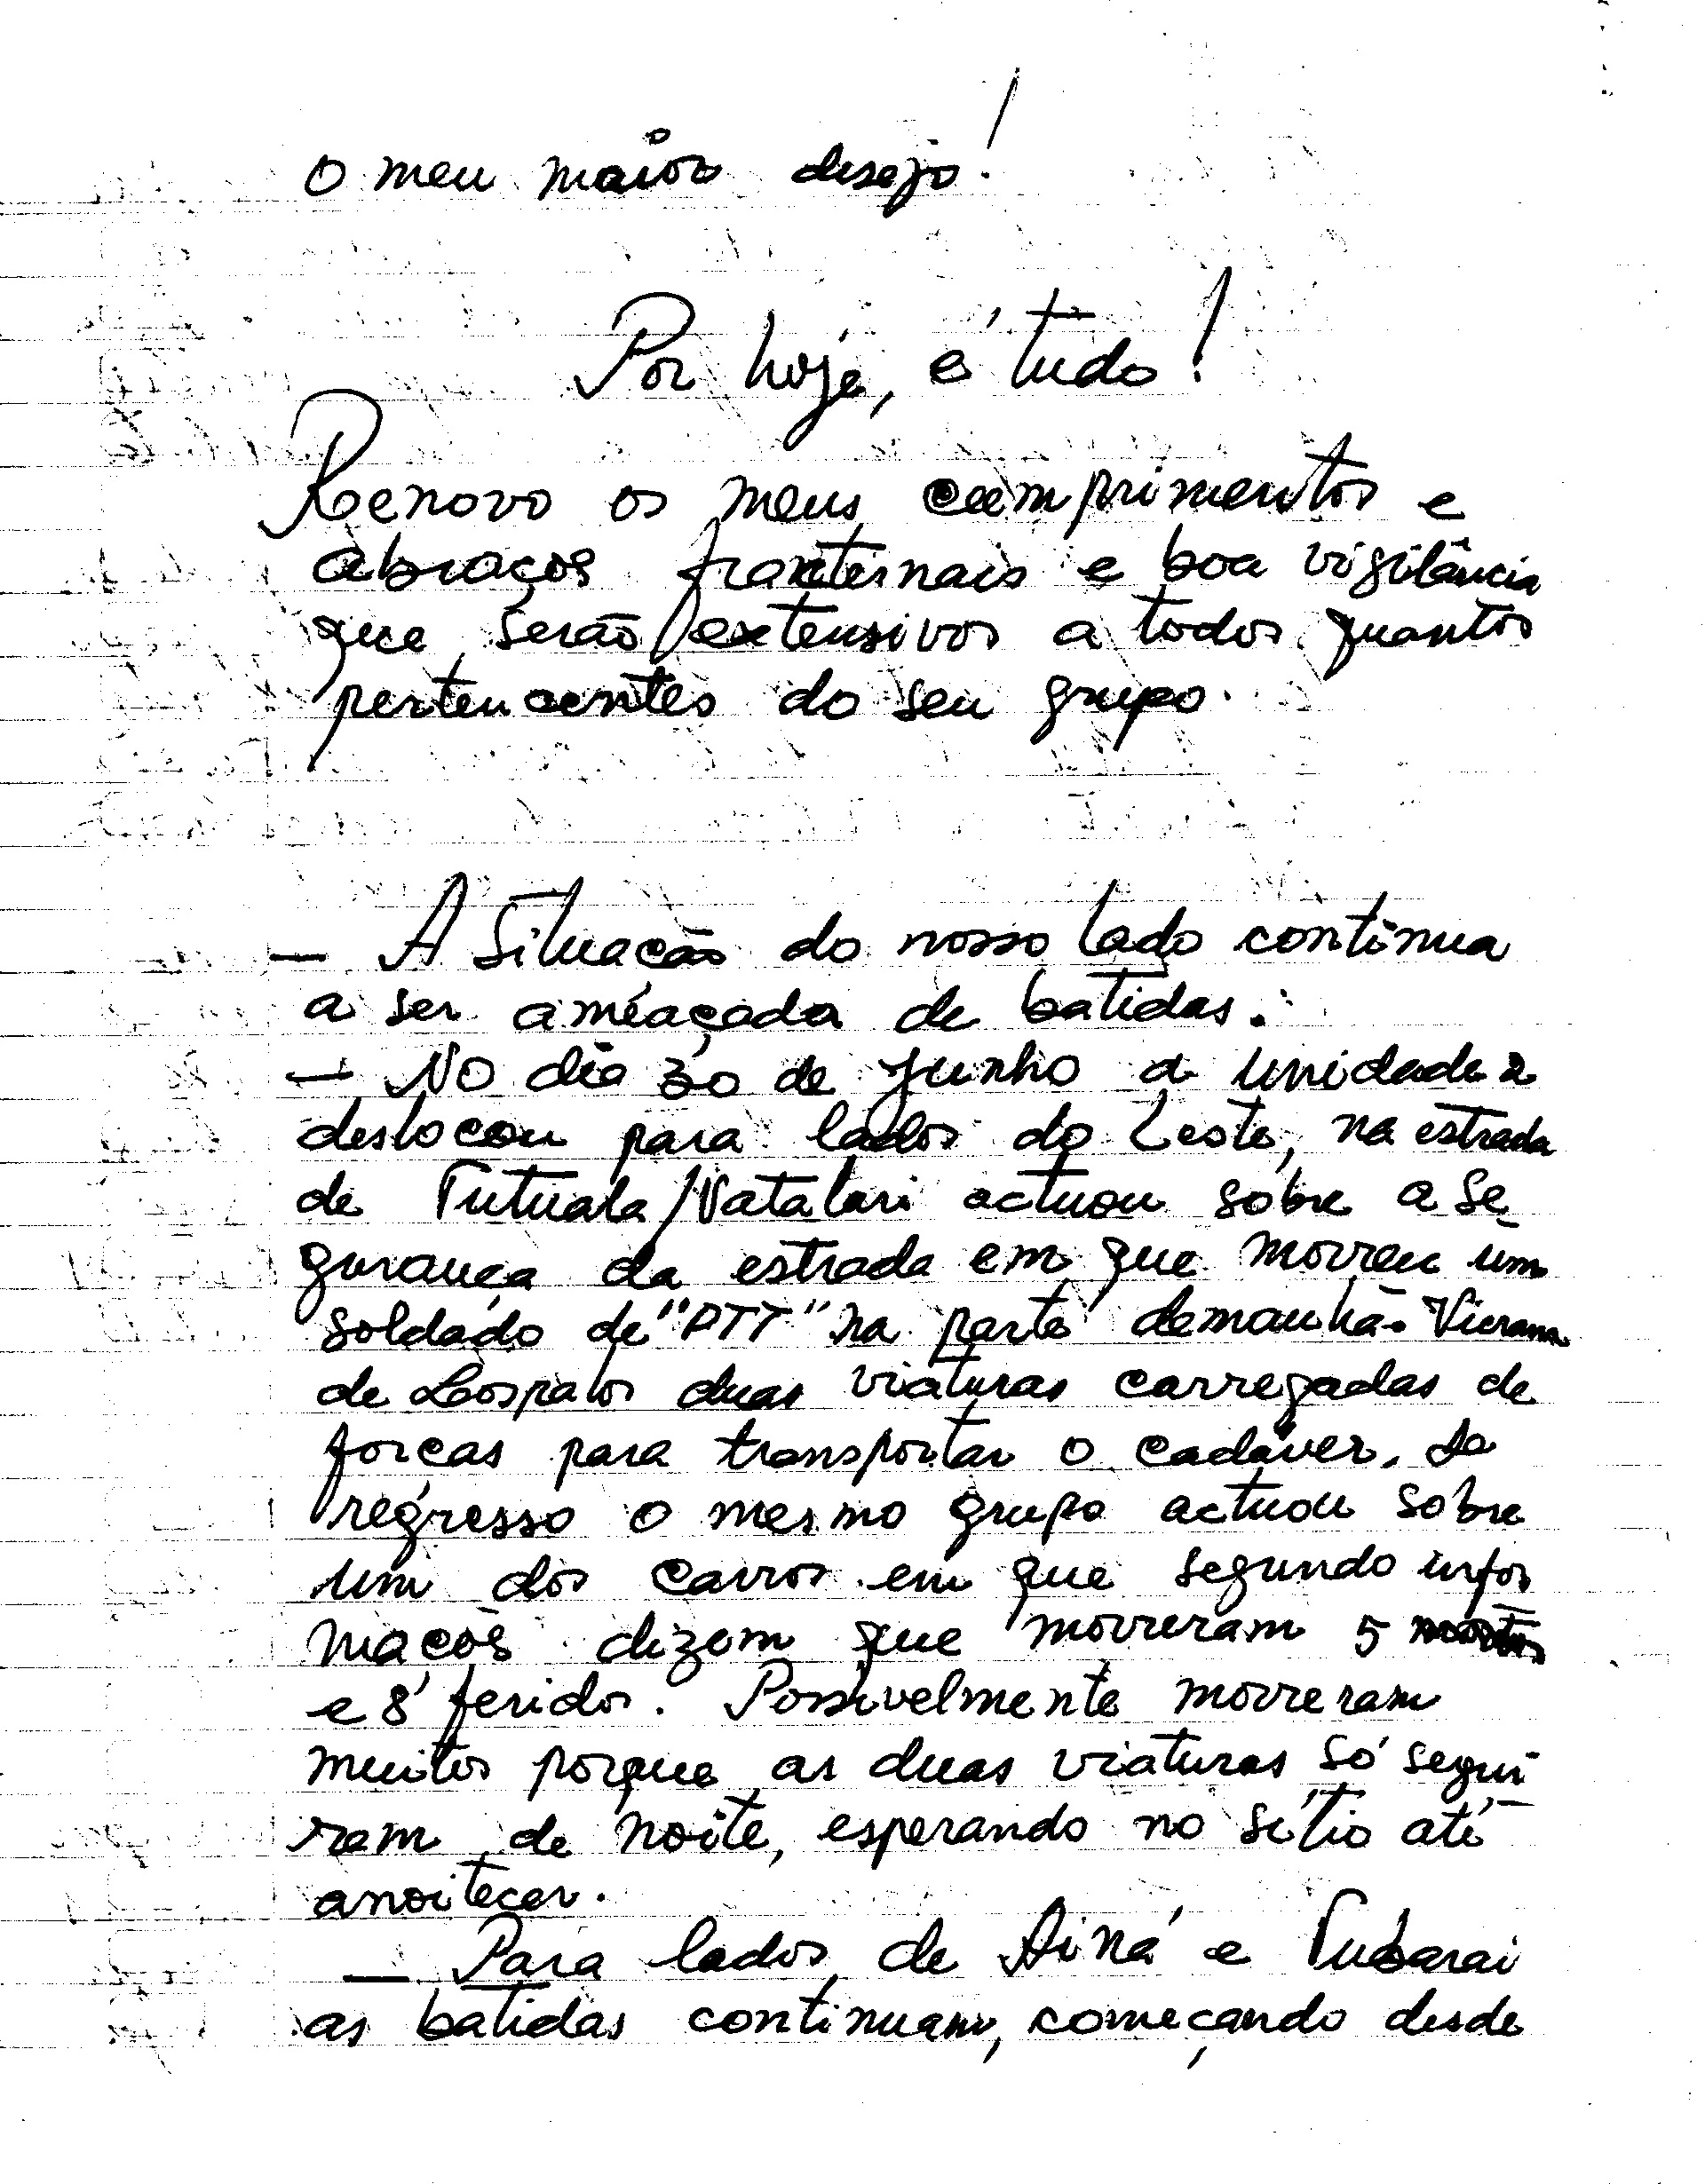 o meu maior desejo!
Por hoje, é tudo!
Renovo os meus cumprimentos e
abraços fraternais e boa vigilância
que serão extensivos a todos quantos
pertencentes do seu grupo.
— A Situação do nosso lado continua
a ser ameaçada de batidas.
— No dia 30 de Junho a unidade 2
deslocou para lados do Leste, na estrada
de Tutuala/Vatalari actuou sobre a se-
gurança da estrada em que morreu um
soldado de "PTT" na parte demanhã. Vieram
de Lospalos duas viaturas carregadas de
forcas para transportar o cadáver. Do
regresso o mesmo grupo actuou sobre
um dos carros em que segundo infor
macós dizem que morreram 5
e 8 feridos. Possívelmente morreram
muitos porque as duas viaturas só segui
ram de noite, esperando no sítio até
anoitecer.
— Para lados de Ainá e Tubarai
as batidas continuam, começando desde